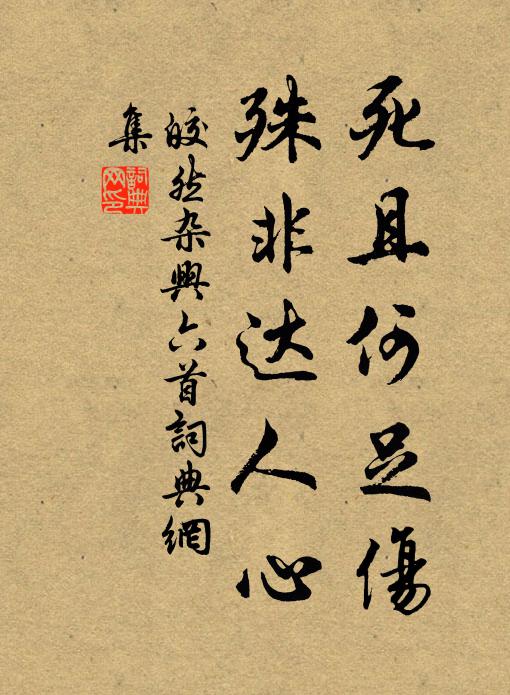 死且何足傷
殊非达人心
皎然杂興六首詞典網
集
詞典
网印